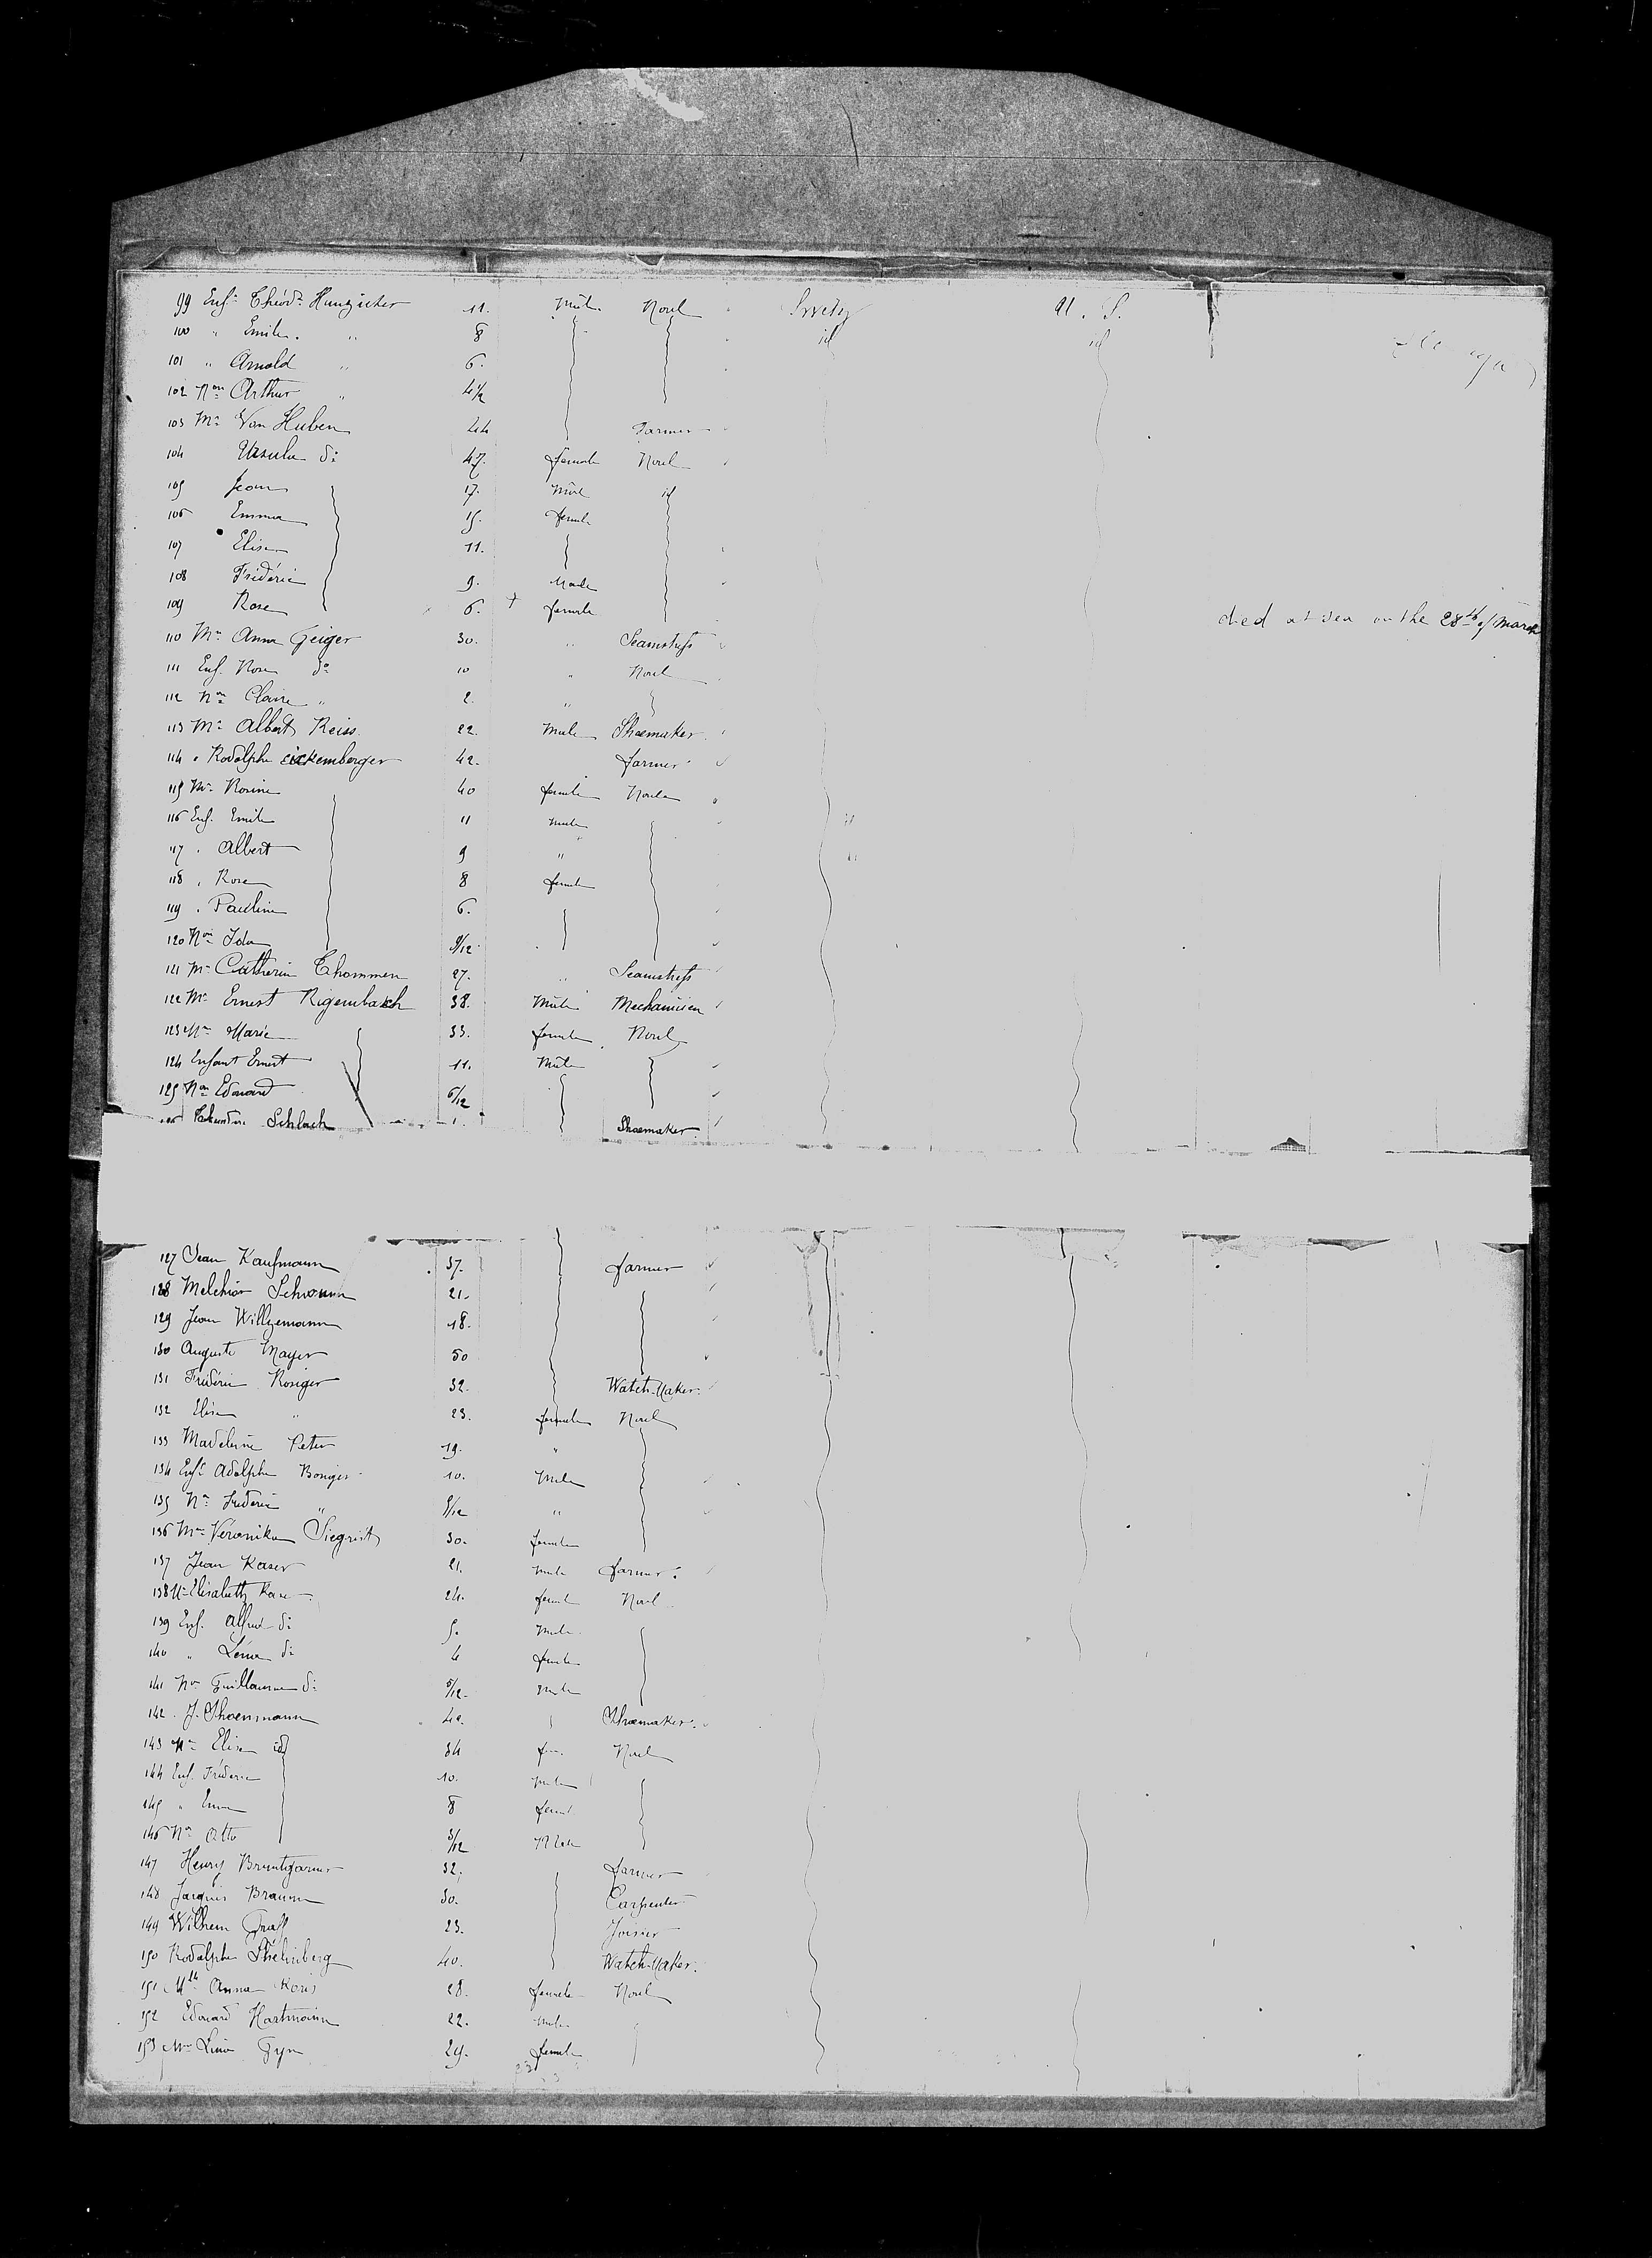 99 Enf. Théod. Hunziker 11. Male Noel U. S.
100 " Emile " 8 id id
101 " Arnold " 6.
102 Non Arthur " 4½
103 Mr Van Huben 44 farmer
104 Ursula do 47. female Noel
105 Jean 17. Male id
106 Emma 15. female
107 Elise 11.
108 Fréderic 9. Male
109 Rose 6. + female died at sea on the 28th of March
110 Me Anna Geiger 30. " Seamstress
111 Enf. Rose do 10 " Noel
112 Non Claire " 2. "
113 Mr Albert Reiss 22. Male Shoemaker
114 " Rodolphe Eickemberger 42. farmer
115 Me Rosine 40 female
116 Enf. Emile 11 Male
117 " Albert 9 "
118 " Rose 8 female
119 " Pauline 6.
120 Non Ida 9/12
121 Me Catherine Thommen 27. " Seamstress
122 Mr Ernest Rigembach 38. Male Mechanicien
123 Me Marie 33. female Noel
124 Enfant Ernest 11. Male
125 Non Edouard 6/12
Schlach Shoemaker
127 Jean Kaufmann 37. farmer
128 Melchior Schwaum 21.
129 Jean Willgemann 18.
130 Auguste Mayer 50
131 Fréderic Rosiger 32. Watch-Maker
132 Elise " 23. female Noel
133 Madeleine Peter 19. "
134 Enf. Adolphe Boniger 10. Male
135 Non Frederic " 9/12 "
136 Me Véronika Siegrist 30. female
137 Jean Kaser 21. Male farmer
138 Me Elisabeth Kase 24. female Noel
139 Enf. Alfred do 5. Male
140 " Léna do 4 female
141 Non Guillaume do 5/12 Male
142 J. Shoenmann 42. Shoemaker
143 Me Elise id 34 fem. Noel
144 Enf. Fréderic 10. Male
145 " Emma 8 female
146 Non Otto 3/12 Male
147 Henry Brumtgarner 32. farmer
148 Jacques Braunn 30. Carpenter
149 Wilhem Graff 23. Joisier
150 Rodolphe Sthelinberg 40. Watch-Maker
151 Mlle Anna Koris 28. female Noel
152 Edouard Hartmann 22. Male
153 Me Lina Gyn 29. female